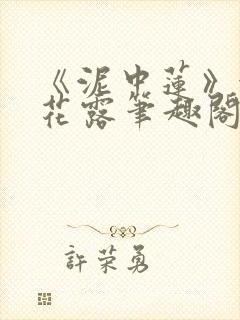 《泥中蓮》
花露筆趣閣
許荣勇